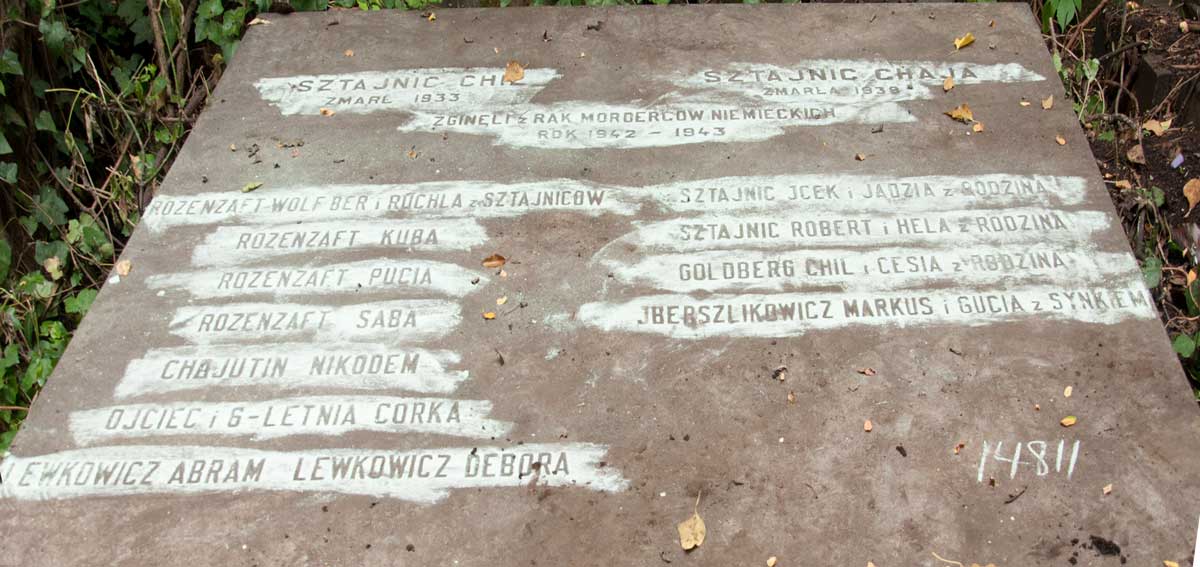 SZTAJNIC CHIL
ZMARŁ 1933
SZTAJNIC CHAJA
ZMARŁA 1939
ZGINĘLI z RĄK MORDERCÓW NIEMIECKICH
ROK 1942 – 1943
ROZENZAFT WOLF BER i ROCHLA z SZTAJNICÓW
ROZENZAFT KUBA
ROZENZAFT PUCIA
ROZENZAFT SABA
CHAJUTIN NIKODEM
OJCIEC i 6-LETNIA CÓRKA
LEWKOWICZ ABRAM LEWKOWICZ DEBORA
SZTAJNIC JCEK i JADZIA z RODZINĄ
SZTAJNIC ROBERT i HELA z RODZINĄ
GOLDBERG CHIL i CESIA z RODZINĄ
JBERSZLIKOWICZ MARKUS i GUCIA z SYNKIEM
14811